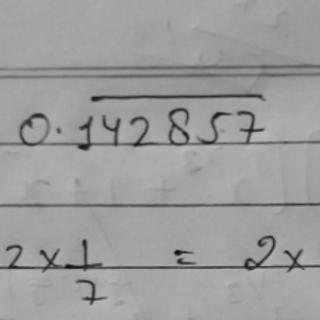 0.\overline{142857}
2 × 1/7 = 2 ×